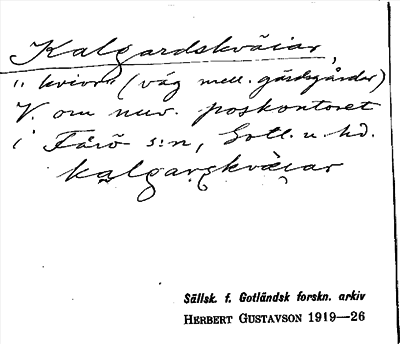 Kalgardskväiar,
"kvior" (väg mell. gärdsgårdar)
V. om nuv. poskontoret
i Fårö s:n, Gotl. n. hd.
kalgarskväiar
Sällsk. f. Gotländsk forskn. arkiv
HERBERT GUSTAVSON 1919—26